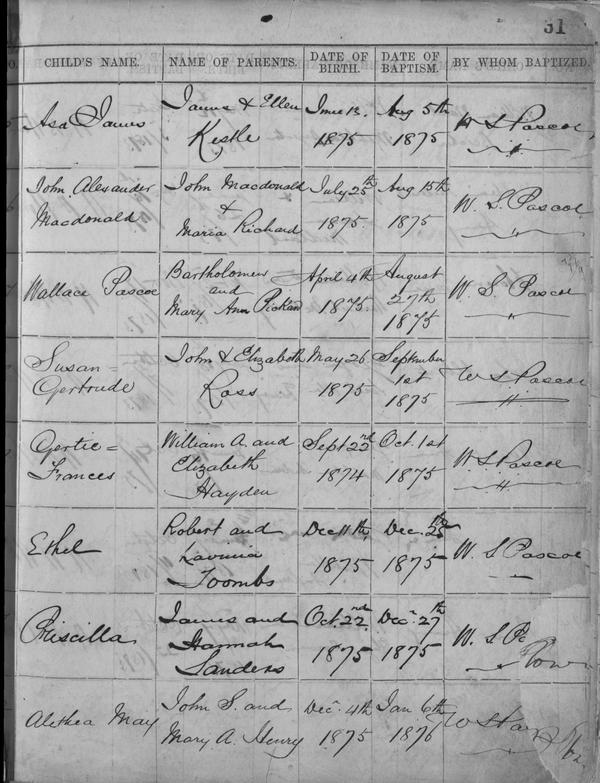 31
O.
CHILD'S NAME.
NAME OF PARENTS.
DATE OF BIRTH.
DATE OF BAPTISM.
BY WHOM BAPTIZED.
Asa James
James & Ellen
Kestle
June 13.
1875
Aug 5th
1875
W S Pascoe
"
John Alexander
Macdonald
John Macdonald
&
Maria Richard
July 25th
1875.
Aug 15th
1875
W. S. Pascoe
"
Wallace Pascoe
Bartholomew
and
Mary Ann Pickard
April 4th
1875.
August
27th
1875
W. S. Pascoe
"
Susan=
Gertrude
John & Elizabeth
Ross
May 26.
1875
September
1st
1875
W S Pascoe
"
Gertie=
Frances
William A. and
Elizabeth
Hayden
Sept 22nd
1874
Oct. 1st
1875
W S Pascoe
"
Ethel
Robert and
Lavinia
Toombs
Dec 11th,
1875
Dec. 25th
1875
W. S Pascoe
Priscilla
James and
Hannah
Sanders
Oct. 22nd
1875
Decr 27th
1875
W. S. P
Alethea May
John S. and
Mary A. Henry
Decr 4th
1875
Jan 6th
1876
W S